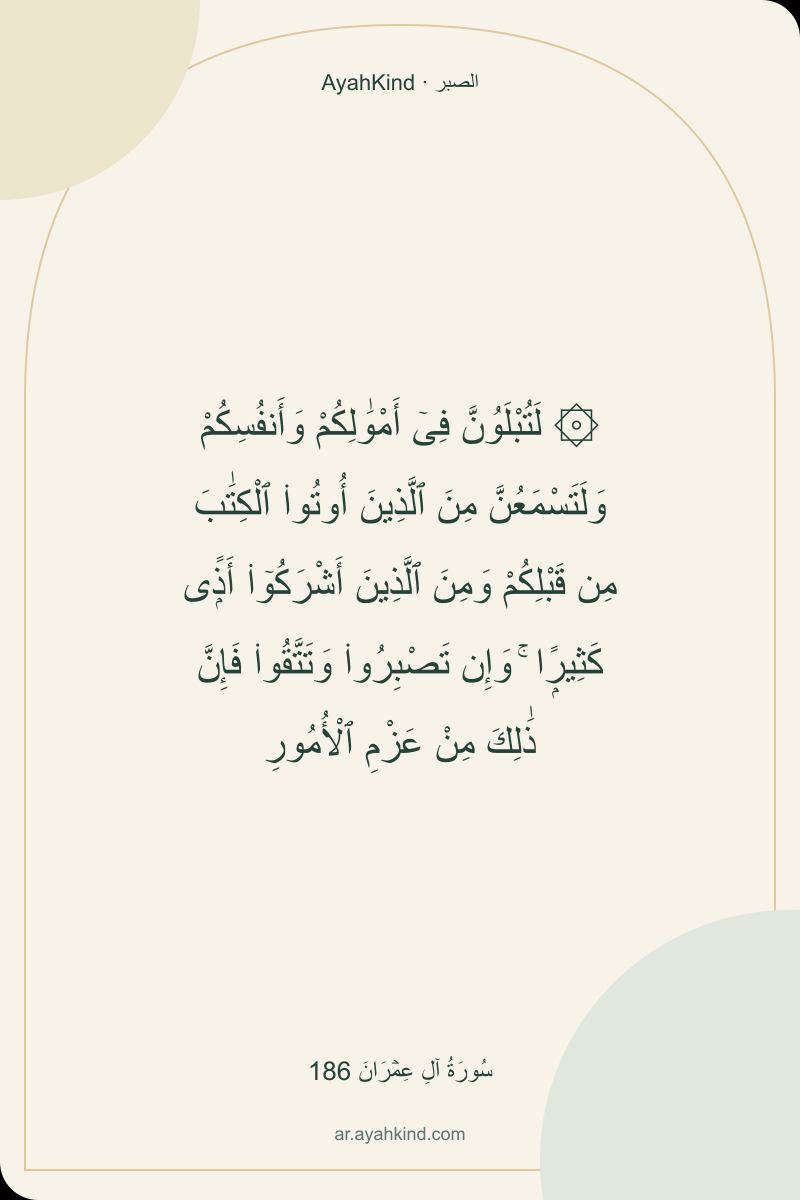 AyahKind · الصبر
۞ لَتُبْلَوُنَّ فِىٓ أَمْوَٰلِكُمْ وَأَنفُسِكُمْ
وَلَتَسْمَعُنَّ مِنَ ٱلَّذِينَ أُوتُوا۟ ٱلْكِتَٰبَ
مِن قَبْلِكُمْ وَمِنَ ٱلَّذِينَ أَشْرَكُوٓا۟ أَذًۭى
كَثِيرًۭا ۚ وَإِن تَصْبِرُوا۟ وَتَتَّقُوا۟ فَإِنَّ
ذَٰلِكَ مِنْ عَزْمِ ٱلْأُمُورِ
سُورَةُ آلِ عِمۡرَانَ 186
ar.ayahkind.com